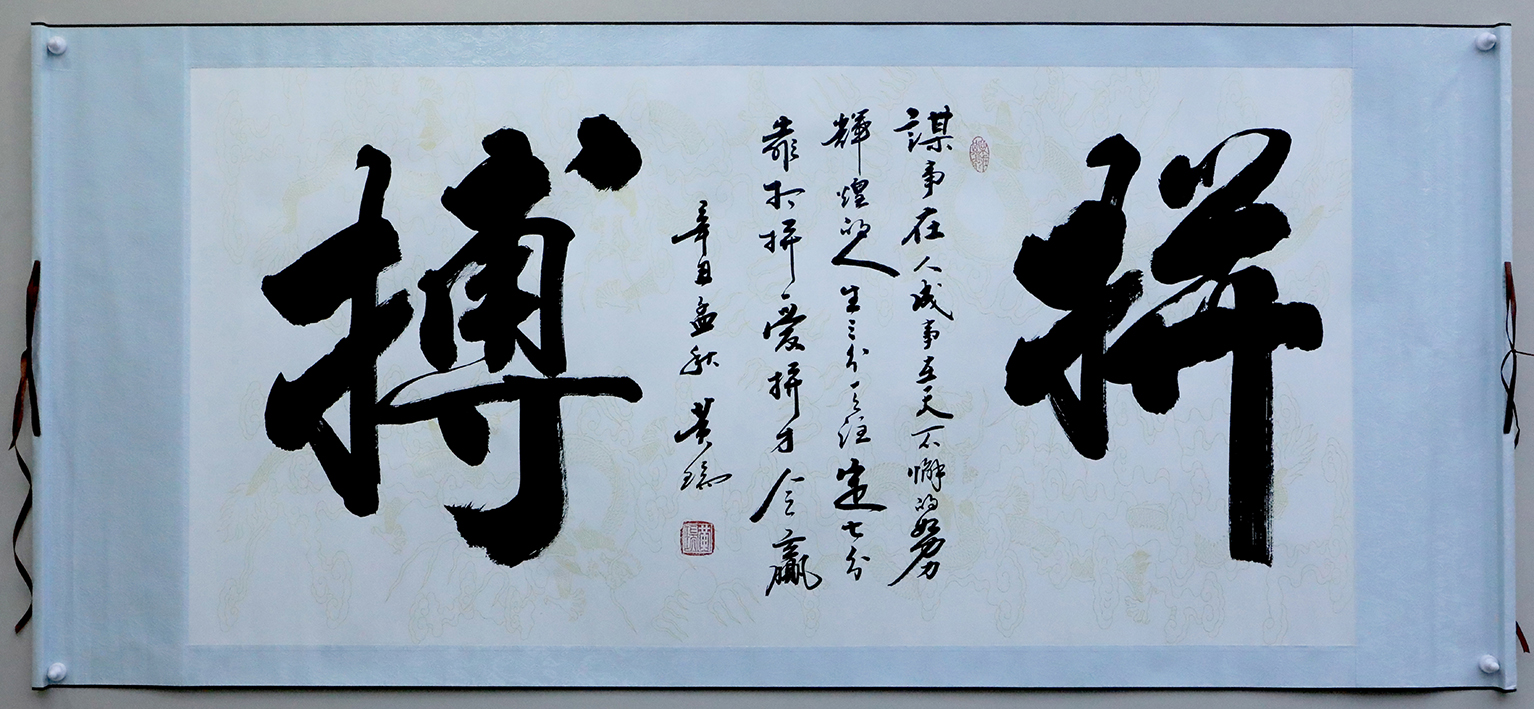 拼
謀事在人成事在天不懈的努力
輝煌的人生三分天注定七分
靠打拼愛拼才会贏
辛丑孟秋 黄
搏